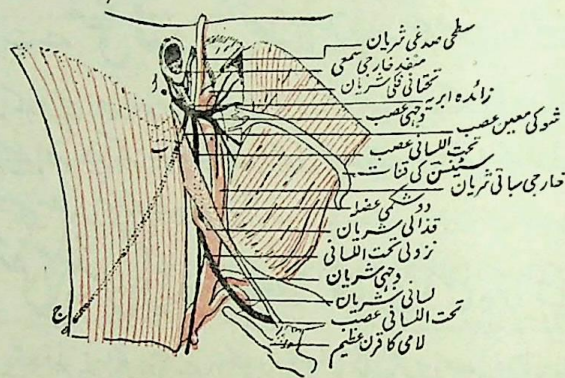 سطحی صدغی شریان
منفذ خارجی سمعی
تحتانی فکی شریان
زائدہ ابریہ
وجہی عصب
شوکی معین عصب
تحت اللسانی عصب
سٹینسن کی قنات
خارجی سباتی شریان
دو شکمی عضلہ
قذالی شریان
نزولی تحت اللسانی
وجہی شریان
لسانی شریان
تحت اللسانی عصب
لامی کا قرن عظیم
ا
ب
ج